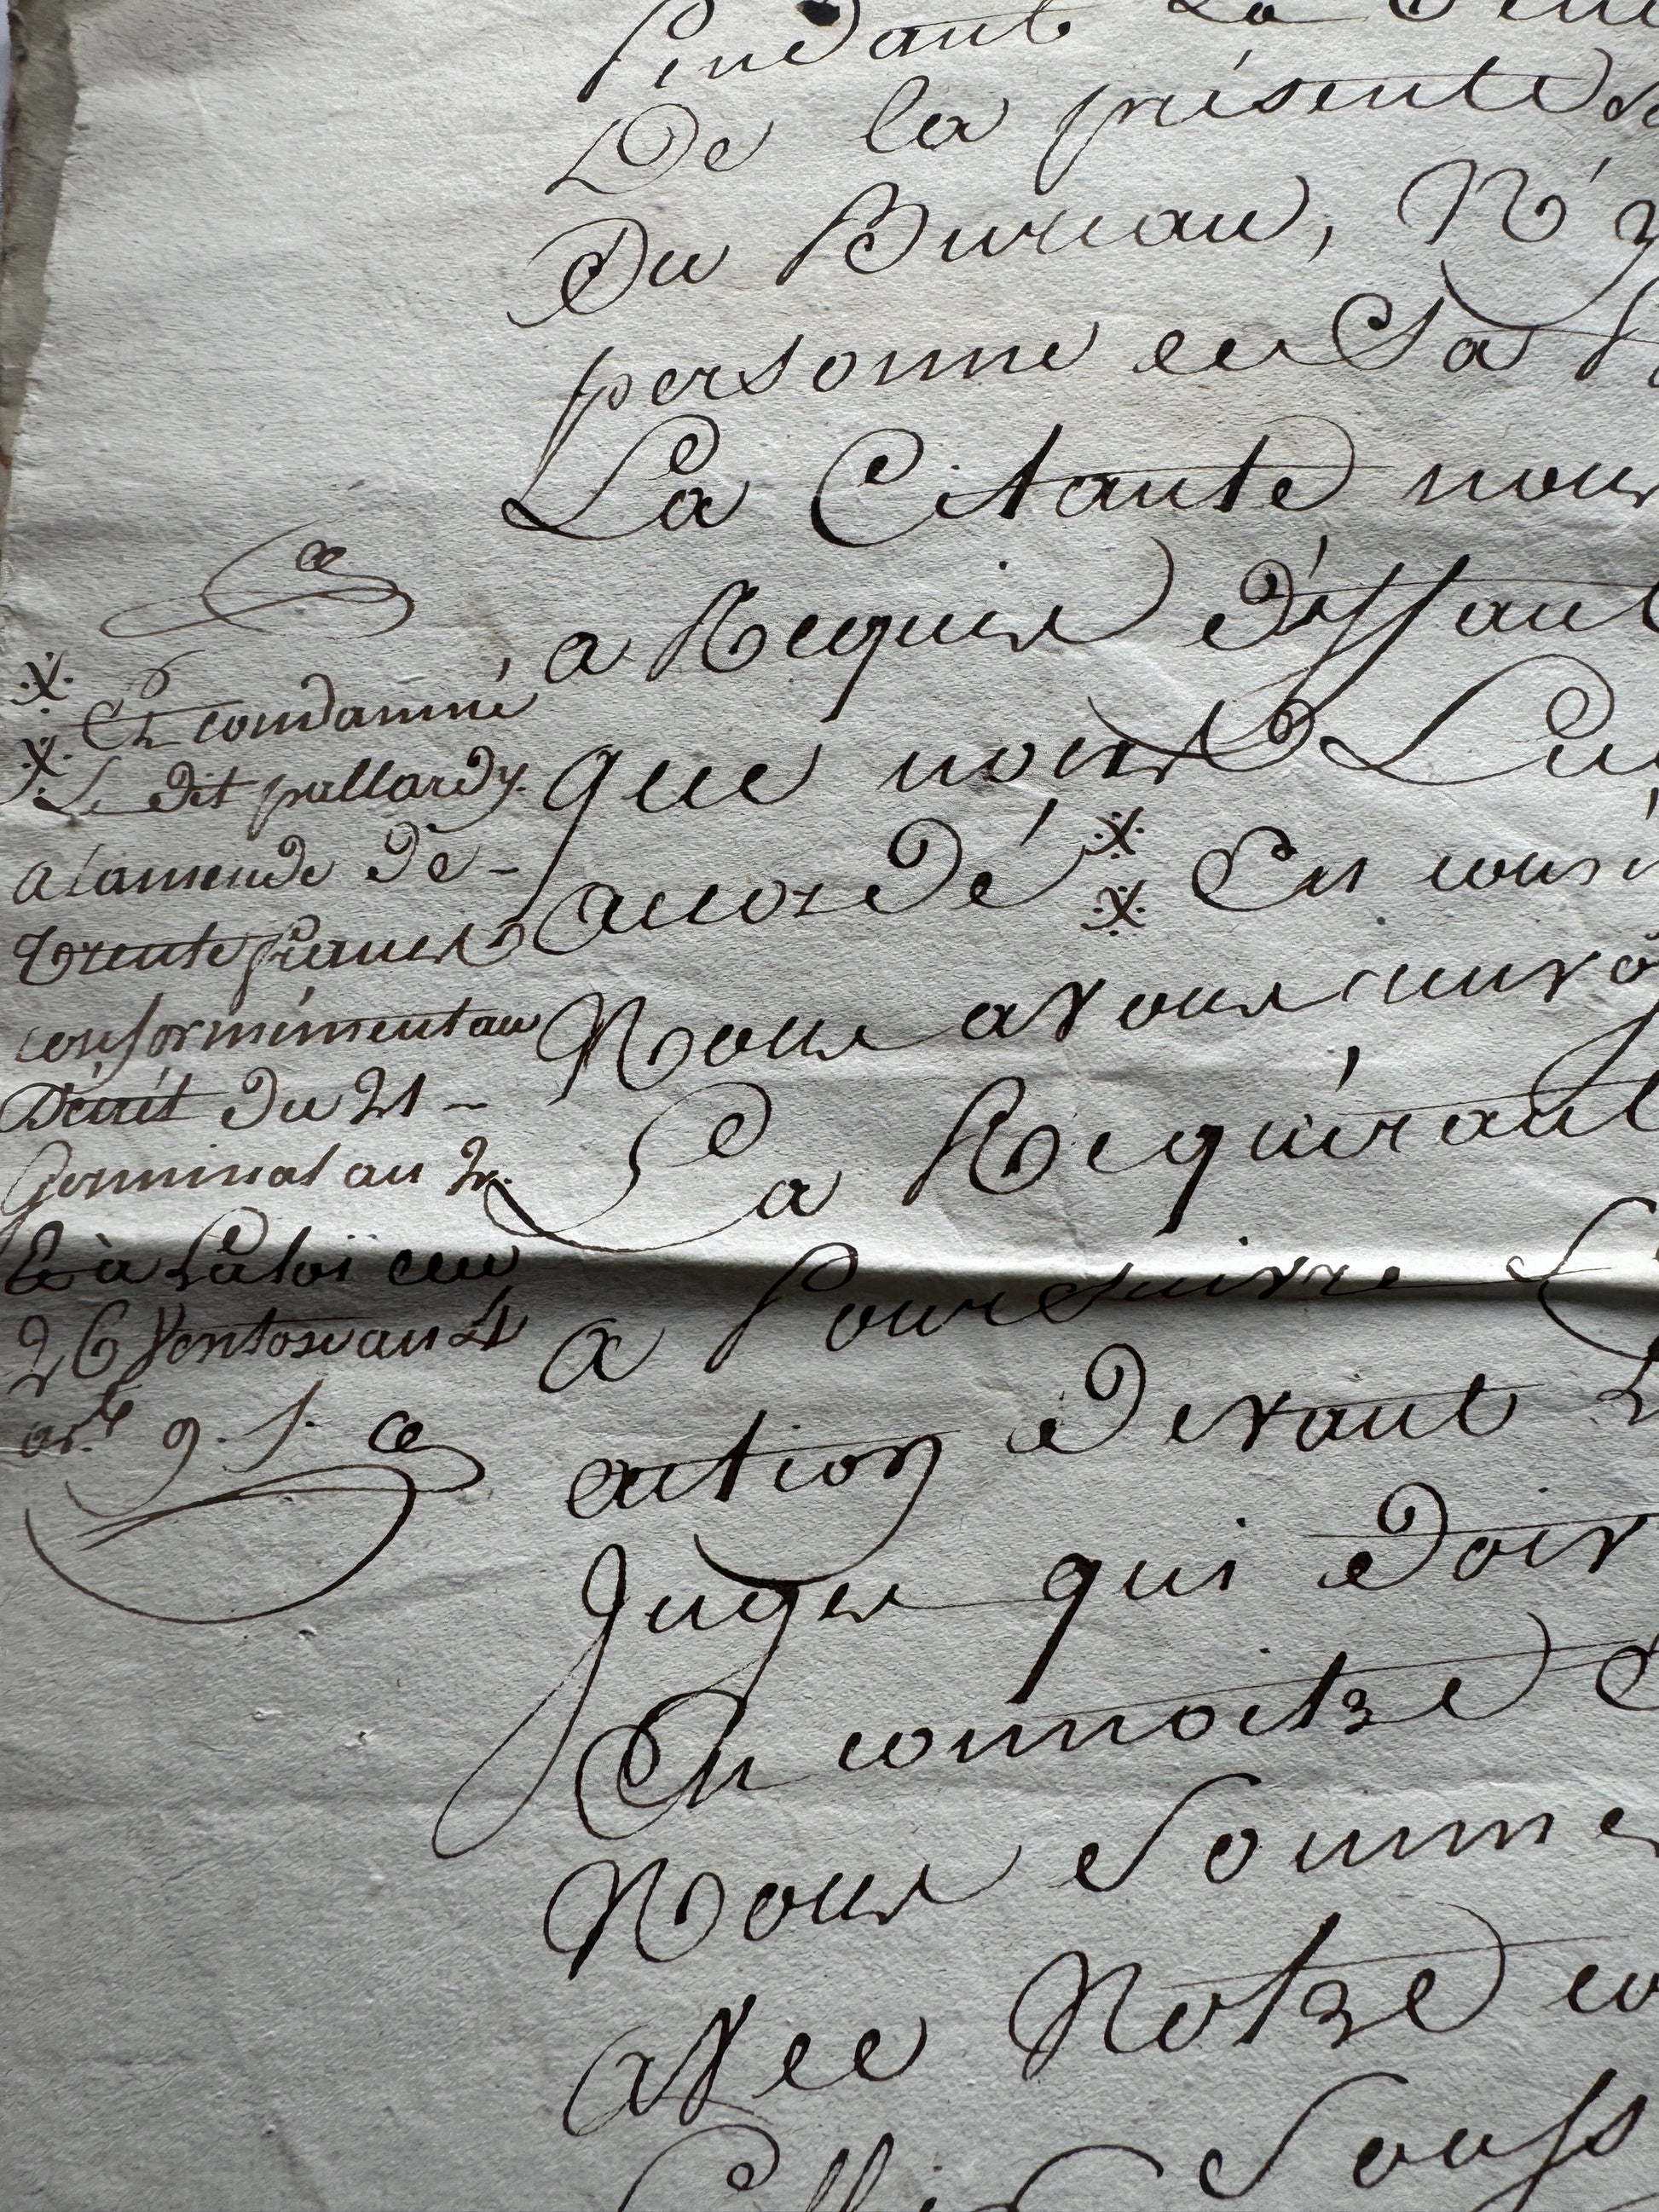 Pendant La
De la présente
Du Bureau, N'y
personne ee Sa
La Citante nous
a Requis déffaut
que nous Lui
accordé ·x· ·x· En
Nous avons
La Requérant
a Poursuivre
action devant
Juges qui doiv
En connoitre
Nous Somme
avec Notre
Souss
·x· Et condamné
·x· Le dit pallardy
a lamende de -
trente francs
conformément au
Décrèt du 21 -
Germinal an 2.
Et à La loi du
26 Ventose an 4
art.le 9. /.